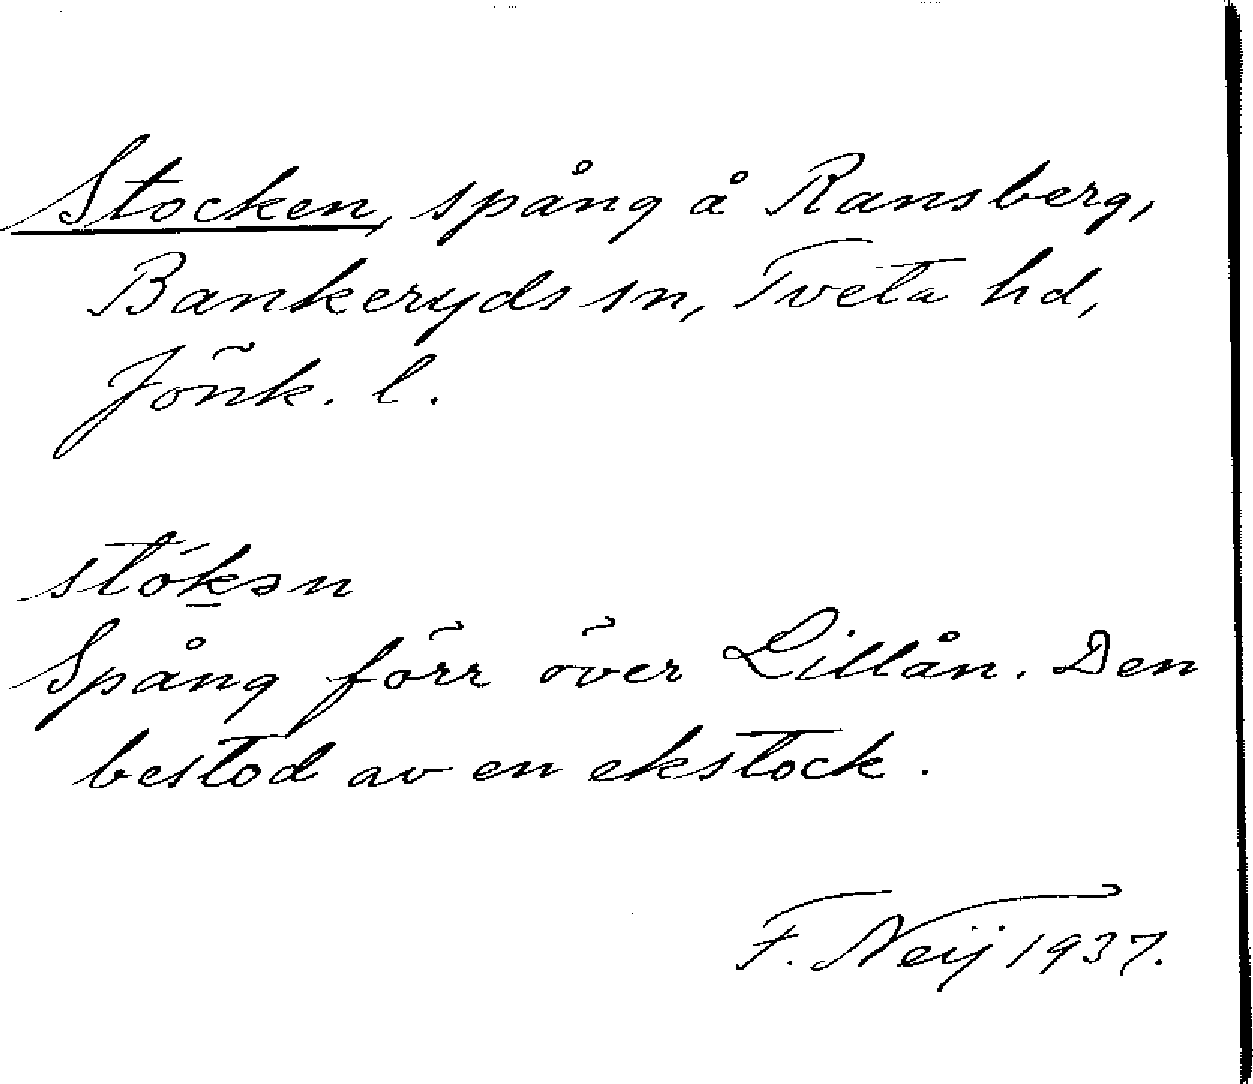 Stocken, spång å Ransberg,
Bankeryds sn, Tveta hd,
Jönk. l.
stók̲ən
Spång förr över Lillån. Den
bestod av en ekstock.
F. Neij 1937.